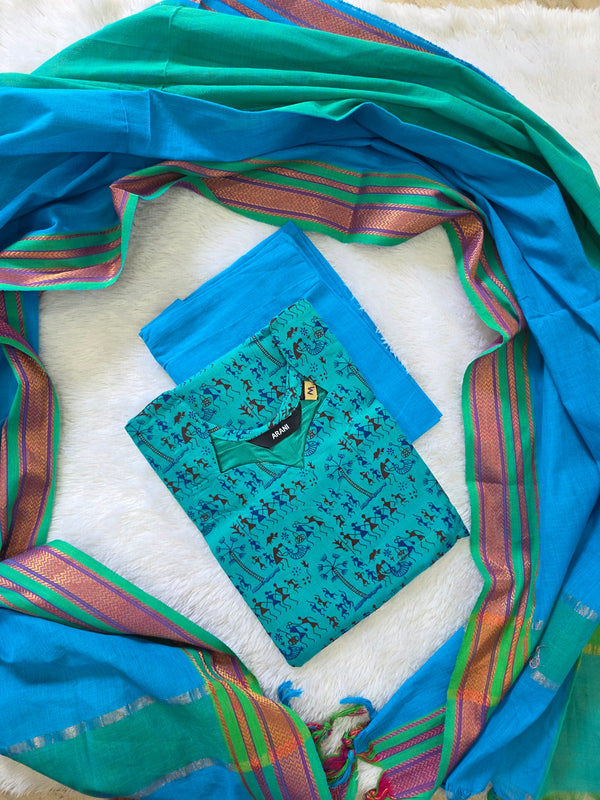 M
ARANI